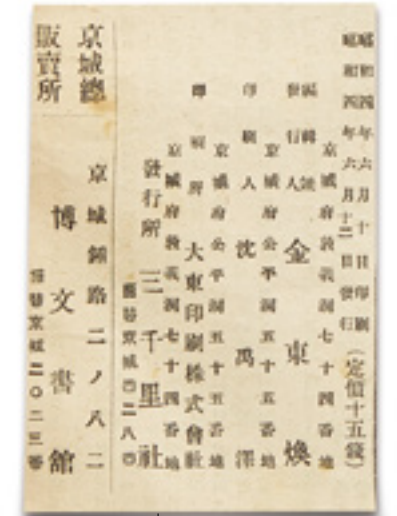 昭和四年六月十日印刷
昭和四年六月十二日發行
(定價十五錢)
京城府敦義洞七十四番地
編輯兼
發行人 金東煥
京城府公平洞五十五番地
印刷人 沈禹澤
京城府公平洞五十五番地
印刷所 大東印刷株式會社
京城府敦義洞七十四番地
發行所 三千里社
振替京城四二八〇
京城總
販賣所
京城鍾路二ノ八二
博文書館
振替京城二〇二三番